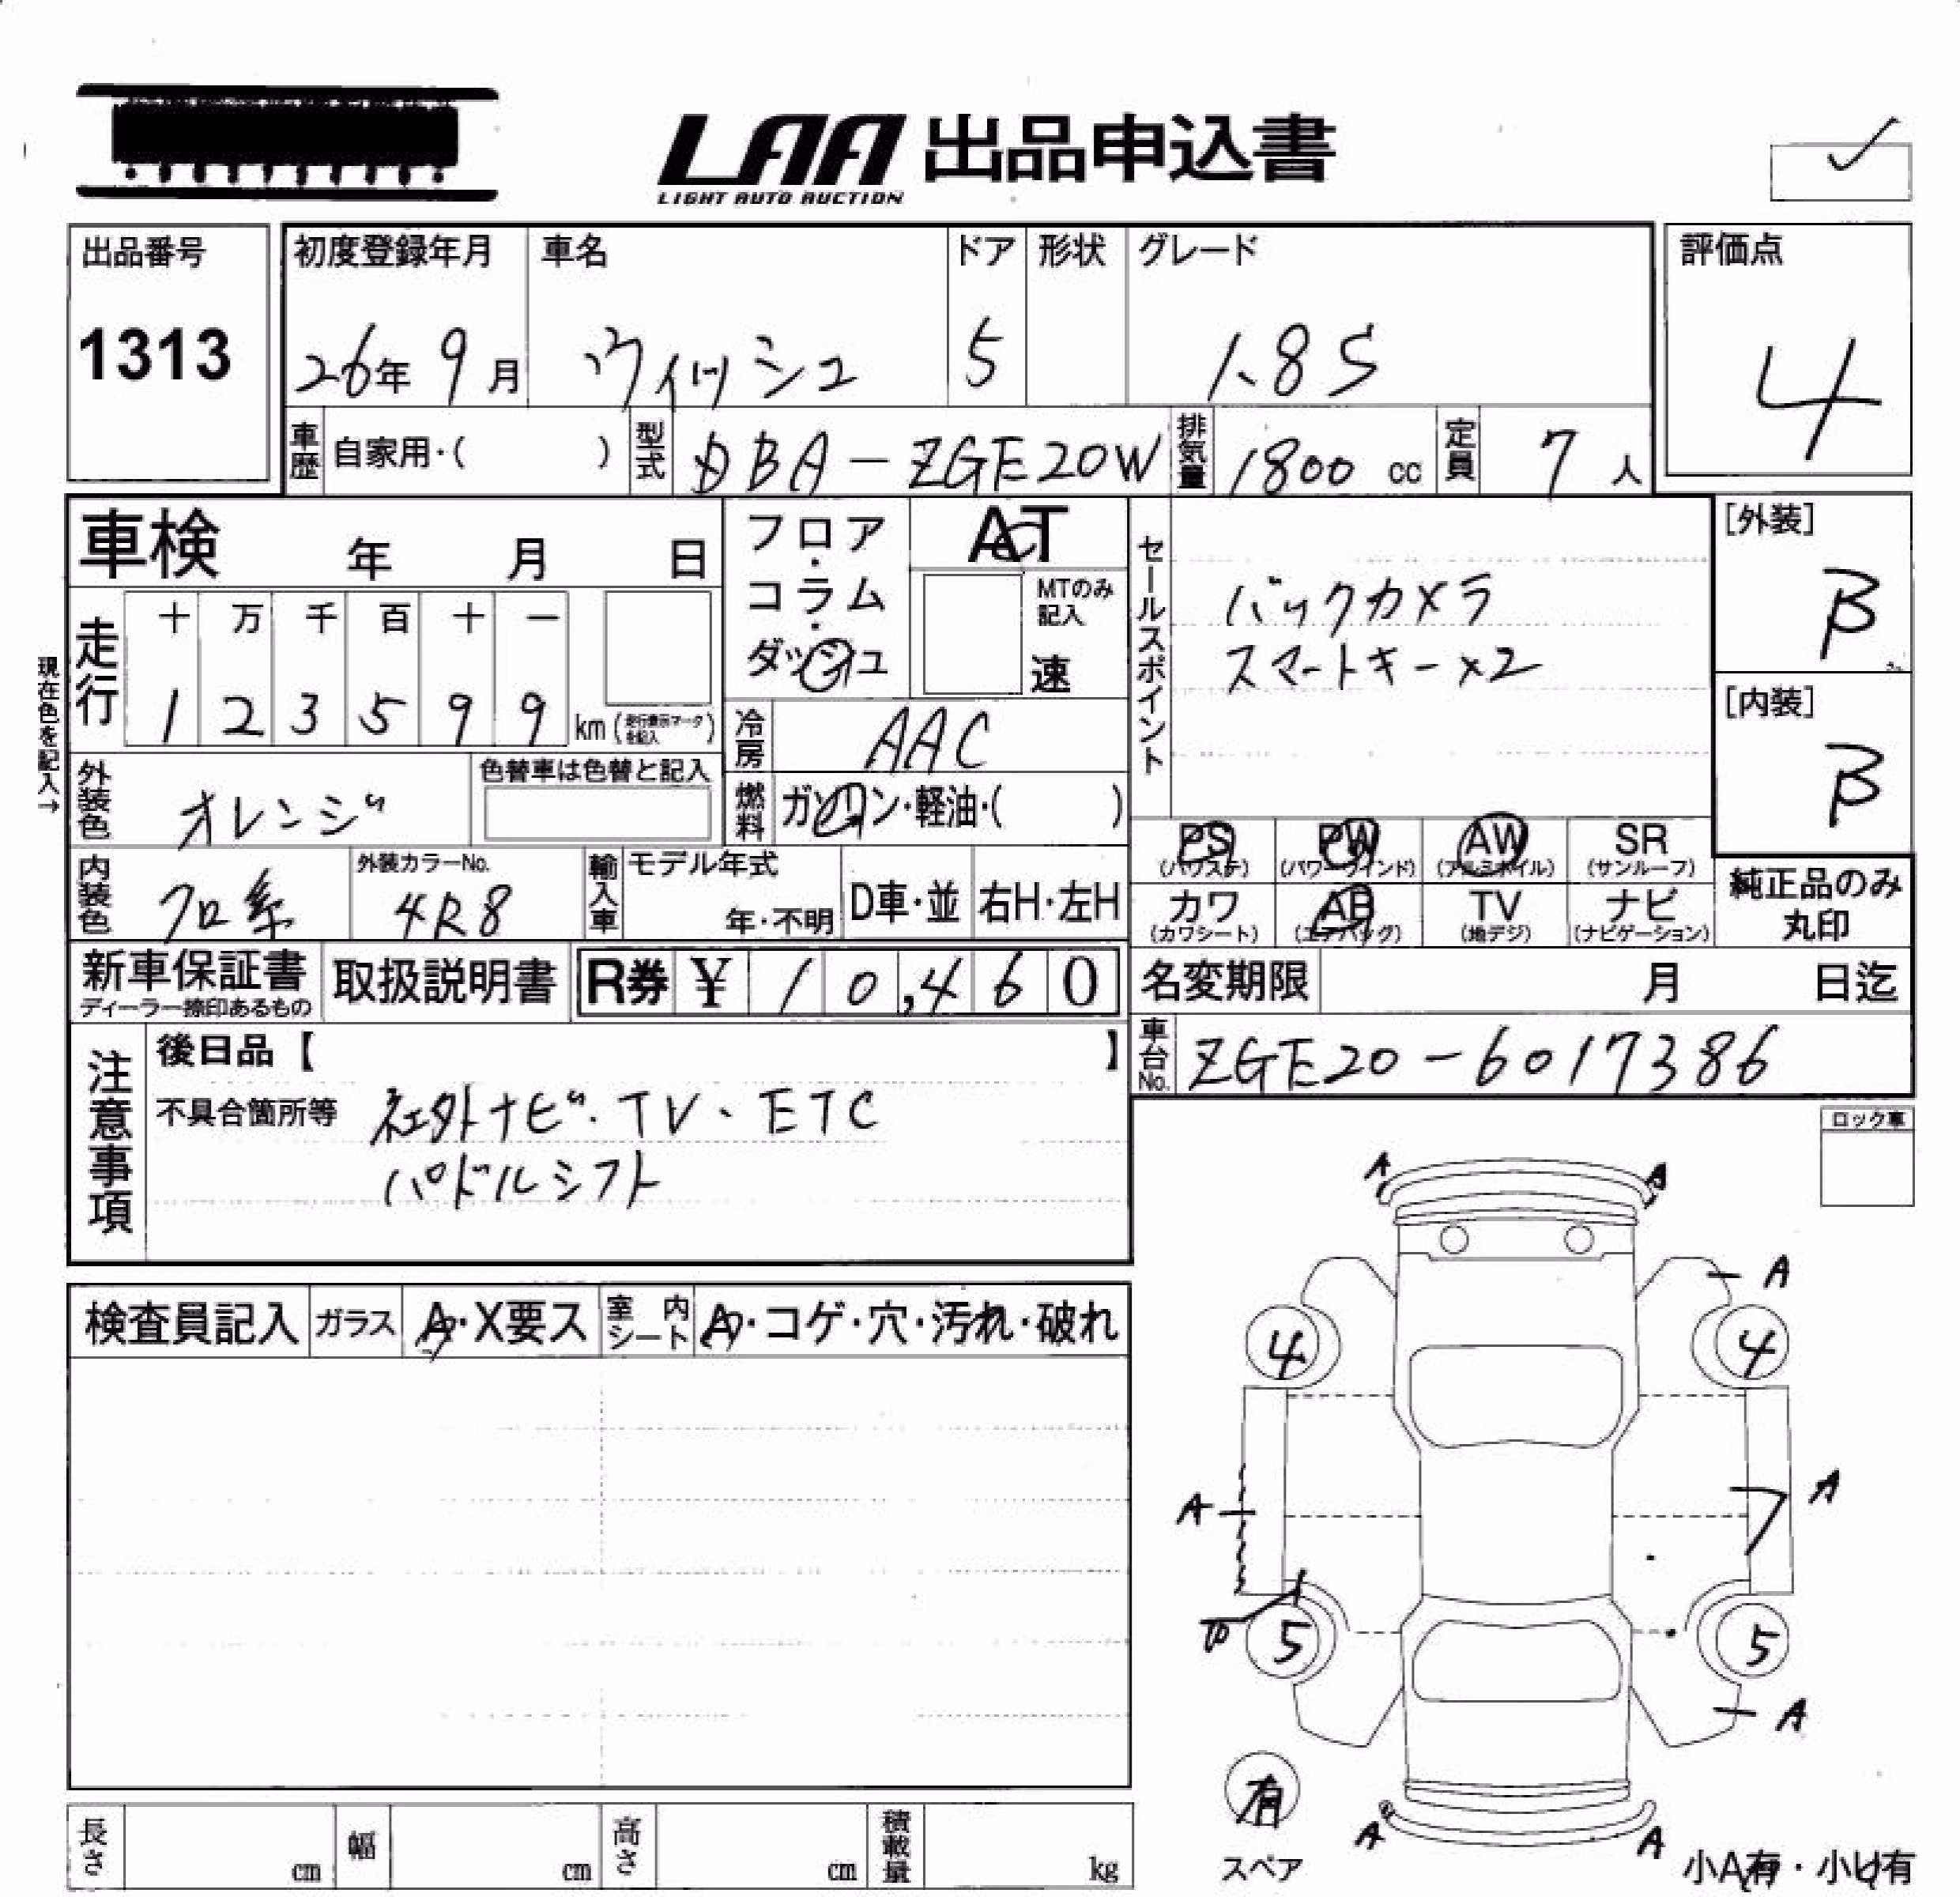 LAA 出品申込書
LIGHT AUTO AUCTION
出品番号
1313
初度登録年月
26年 9月
車名
ウィッシュ
ドア
5
形状
グレード
1.8S
評価点
4
車歴 自家用・( )
型式 DBA-ZGE20W
排気量 1800 cc
定員 7 人
車検 年 月 日
フロア・コラム・ダッシュ
AT
MTのみ記入
速
セールスポイント
バックカメラ
スマートキー×2
[外装]
B
[内装]
B
現在色を記入→
走行
十 万 千 百 十 一
1 2 3 5 9 9 km (走行表示マークを記入)
冷房 AAC
外装色 オレンジ
色替車は色替と記入
燃料 ガソリン・軽油・( )
PS (パワステ)
PW (パワーウインド)
AW (アルミホイル)
SR (サンルーフ)
内装色 クロ系
外装カラーNo.
4R8
輸入車
モデル年式
年・不明
D車・並
右H・左H
カワ (カワシート)
AB (エアバッグ)
TV (地デジ)
ナビ (ナビゲーション)
純正品のみ
丸印
新車保証書
ディーラー捺印あるもの
取扱説明書
R券 ¥ 10,460
名変期限 月 日迄
車台No. ZGE20-6017386
注意事項
後日品【 】
不具合箇所等 社外ナビ・TV、ETC
パドルシフト
ロック車
検査員記入
ガラス A・X要ス
室内シート A・コゲ・穴・汚れ・破れ
A A
A
4 4
A A
5 5
A
A A
有
スペア
小A有・小U有
長さ cm
幅 cm
高さ cm
積載量 kg